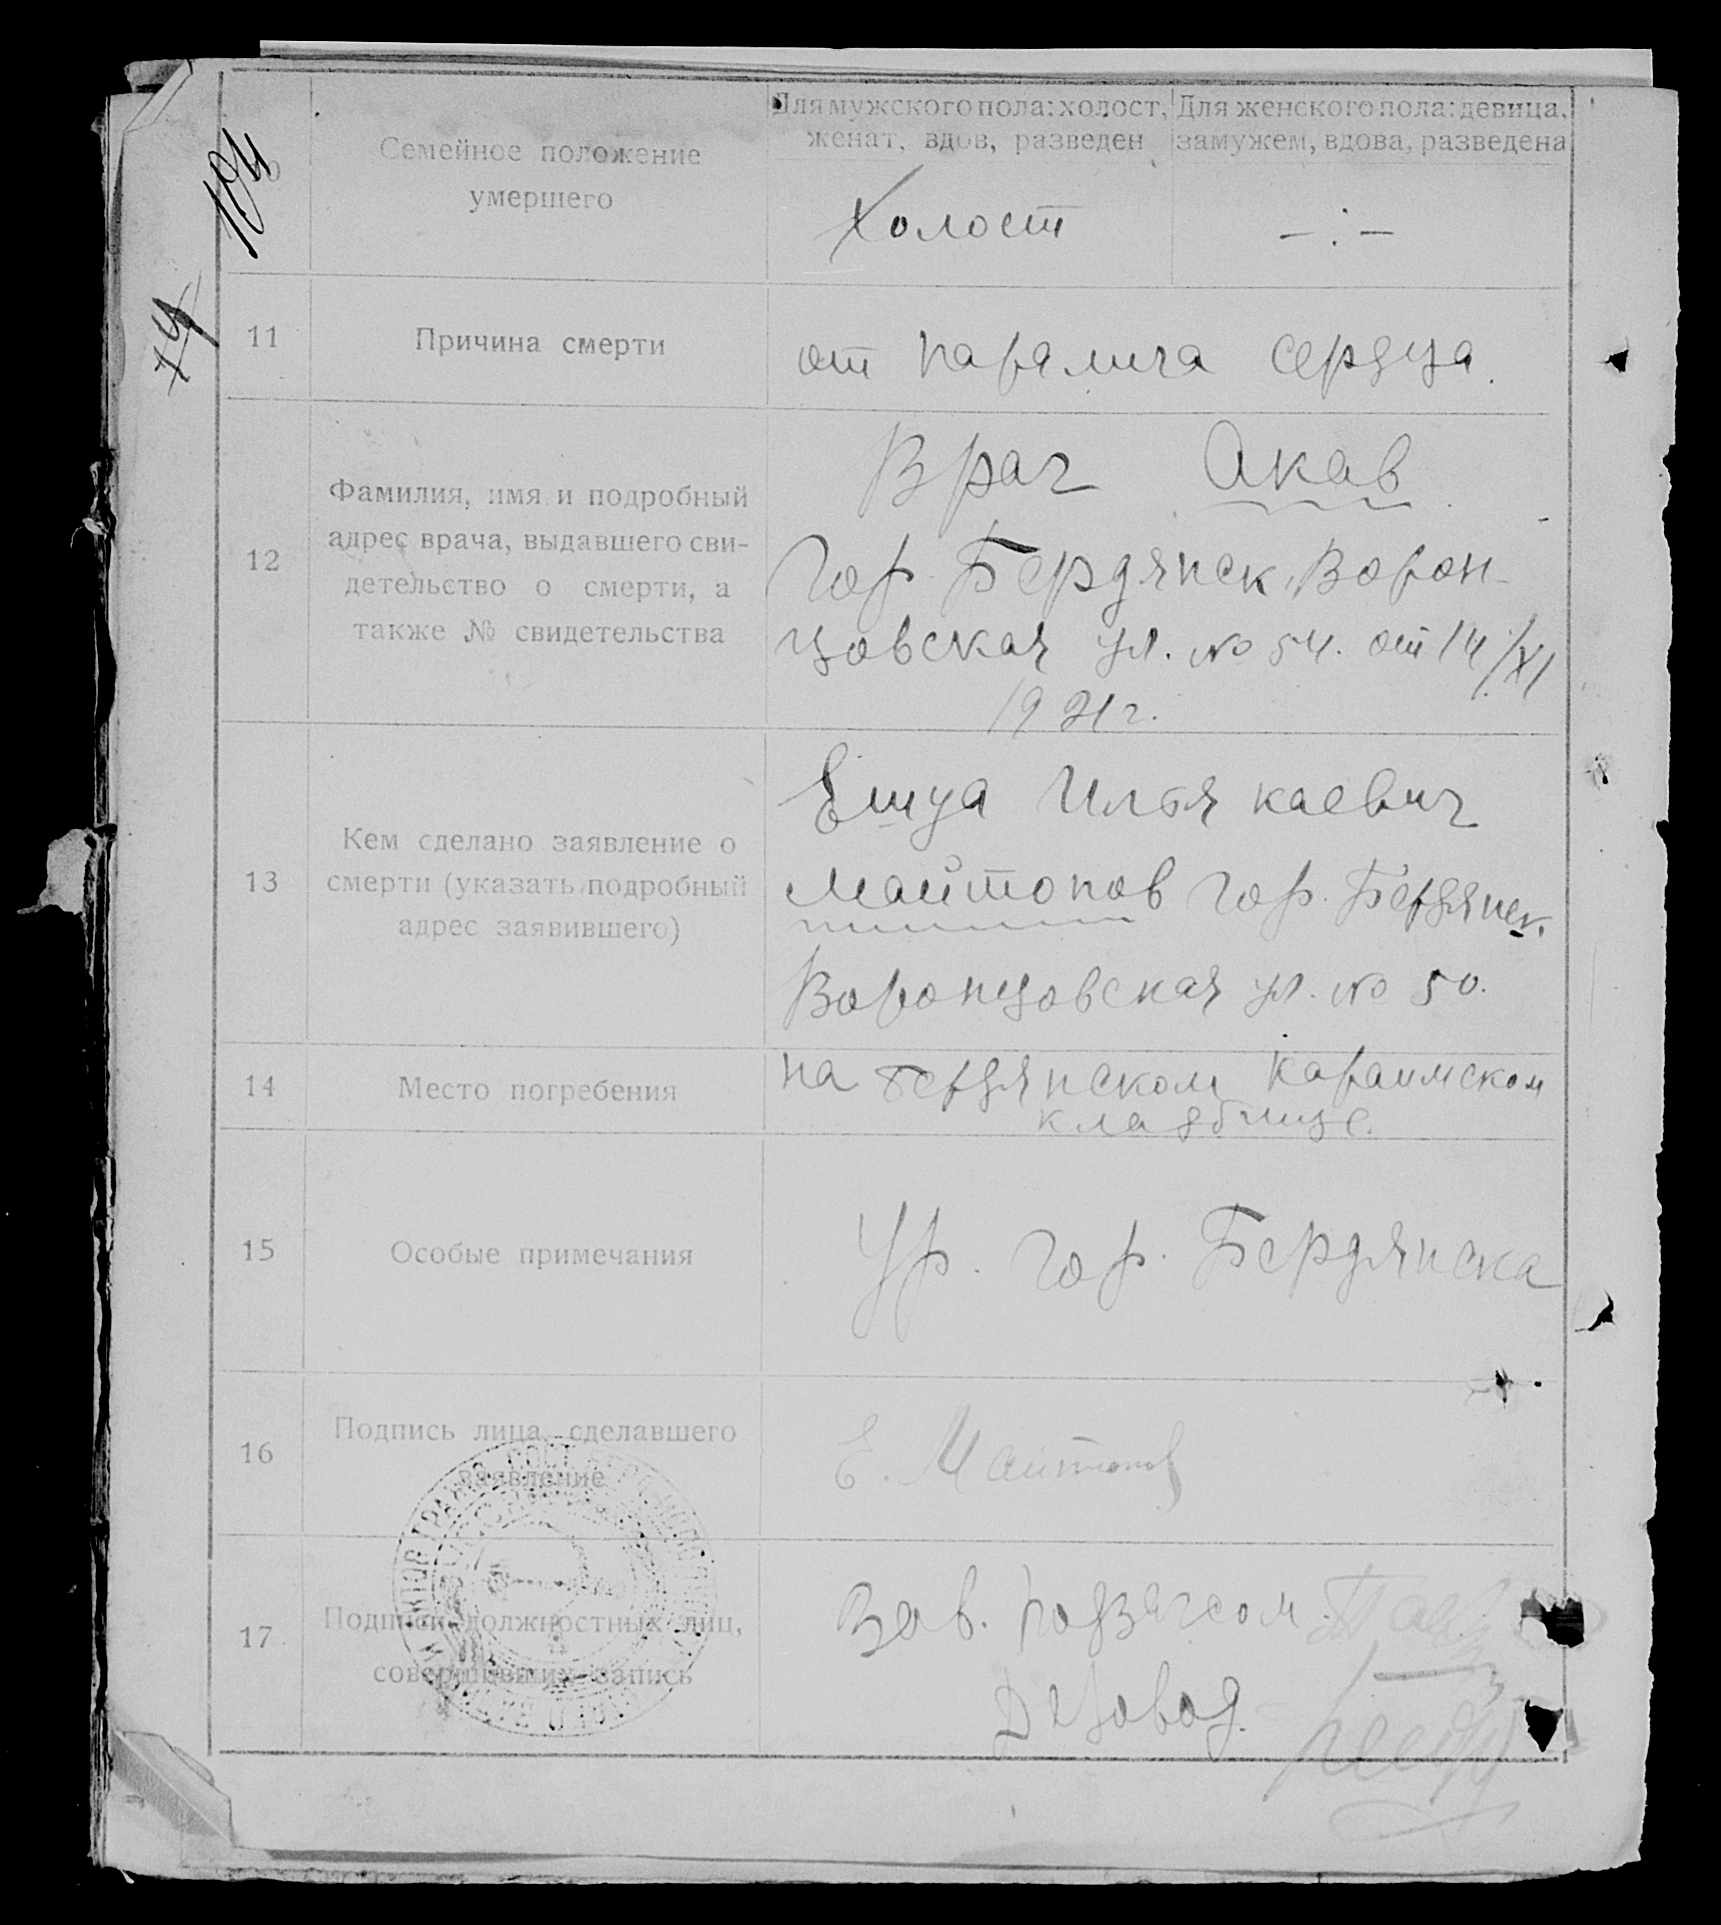 194
74
Семейное положение
умершего
Для мужского пола: холост,
женат, вдов, разведен
Для женского пола: девица,
замужем, вдова, разведена
Холост
— . —
11
Причина смерти
от паралича сердца.
12
Фамилия, имя и подробный
адрес врача, выдавшего сви-
детельство о смерти, а
также № свидетельства
Врач Акав
Гор. Бердянск, Ворон-
цовская ул. № 54. от 14/XI
1921г.
13
Кем сделано заявление о
смерти (указать подробный
адрес заявившего)
Ешуа Ильякаевич
Майтопов гор. Бердянск.
Воронцовская ул. № 50.
14
Место погребения
на Бердянском Караимском
кладбище.
15
Особые примечания
Ур. гор. Бердянска
16
Подпись лица, сделавшего
заявление
Е. Майтопов
17
Подписи должностных лиц,
совершивших запись
Зав. подзагсом
Деловод.